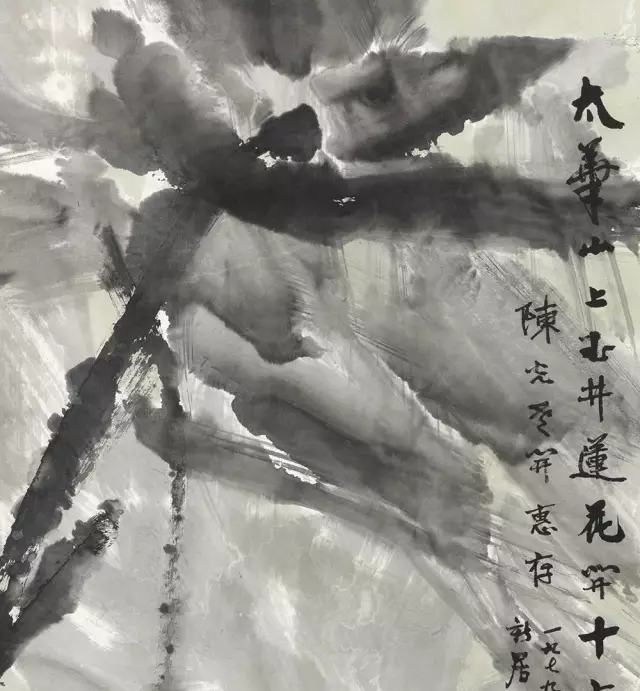 太華山上玉井蓮花開十
陳光開惠存
一九七九
新居